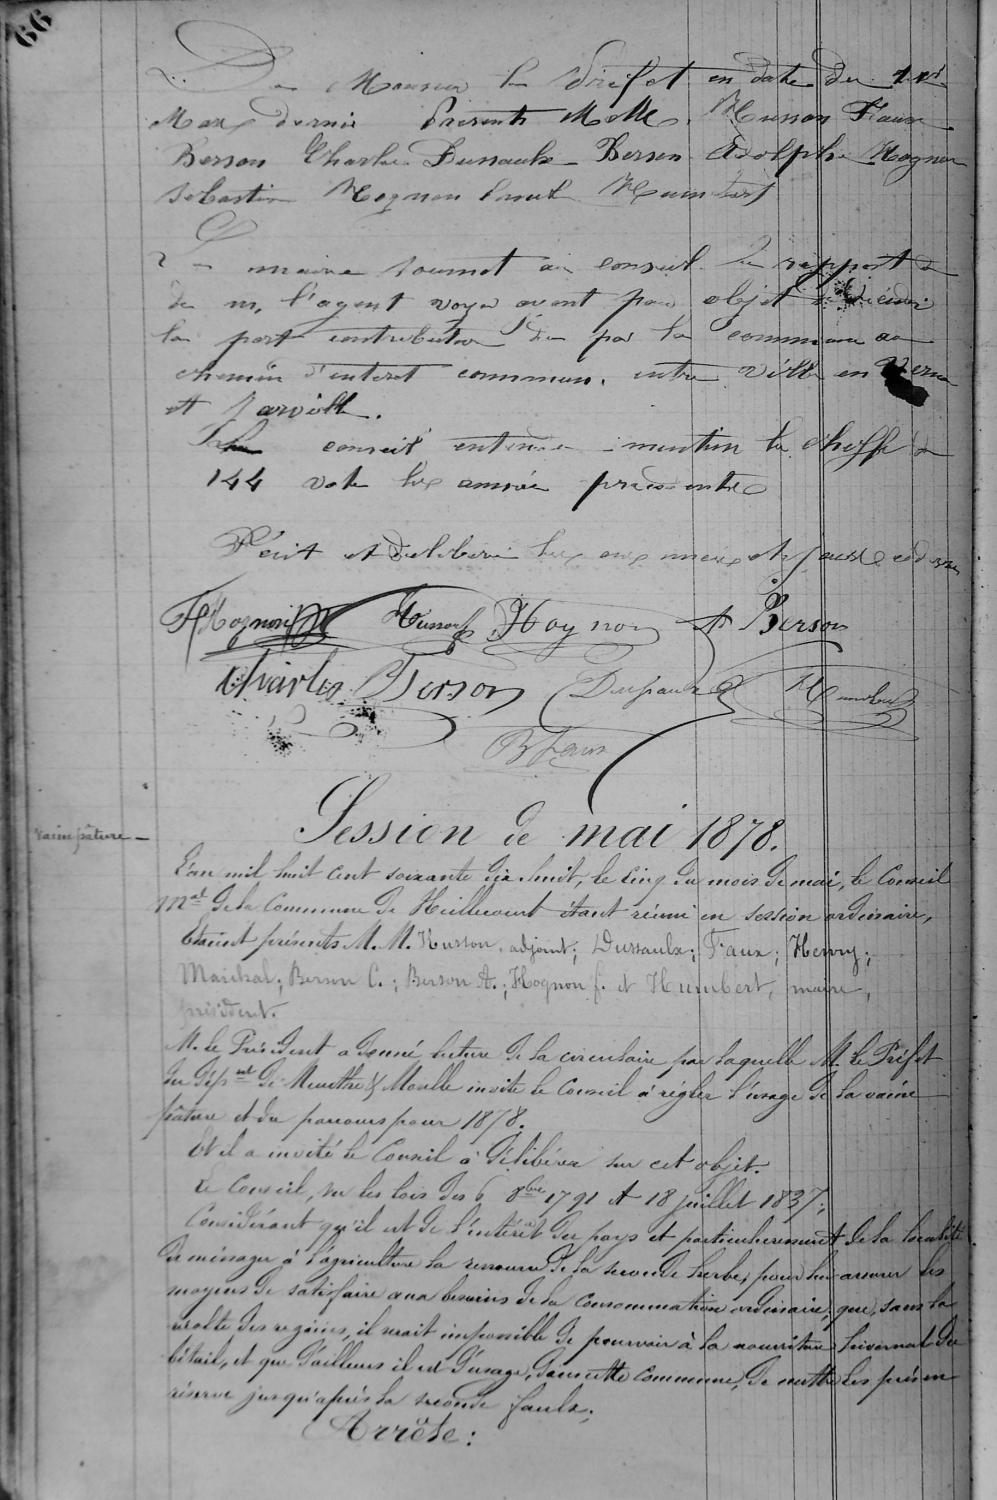 66
De Monsieur le Préfet en date du
Mars dernier Présents M Husson Faux
Berson Charles Dussaulx Berson Adolphe Hognon
Sébastien Hognon Humbert
Le maire soumet au conseil le rapport de
de m, l'agent voyer ayant pour objet
la part contributive due par la commune au
chemin d'interet commun. entre Ville en Verm
et Parville.
conseil mention le chiffre de
144 vote les année présente
Fait et délibéré les ans mois et jours
Hognon Husson Hognon A Berson
Charles Berson Dussaulx Humbert
B Faux
Session de mai 1878.
Vaine pâture —
L'an mil huit cent soixante dix huit, le cinq du mois de mai, le Conseil
Mal de la Commune de Heillecourt étant réuni en session ordinaire,
Etaient présents M. M. Husson, adjoint; Dussaulx; Faux; Henry;
Maréchal; Berson C.; Berson A.; Hognon f. et Humbert, maire,
président.
M. le Président a donné lecture de la circulaire par laquelle M. le Préfet
du dépmt de Meurthe & Moselle invite le Conseil à régler l'usage de la vaine
pâture et du parcours pour 1878.
Et il a invité le Conseil à délibérer sur cet objet.
Le Conseil, vu les lois des 6 8bre 1791 et 18 juillet 1837;
Considérant qu'il est de l'intérêt du pays et particulièrement de la localité
de ménager à l'agriculture la ressource de la seconde herbe, pour lui assurer les
moyens de satisfaire aux besoins de la consommation ordinaire; que, sans la
récolte des regains, il serait impossible de pourvoir à la nourriture hivernale du
bétail, et que d'ailleurs il est d'usage, dans cette commune, de mettre les prés en
réserve jusqu'après la seconde faulx;
Arrête: